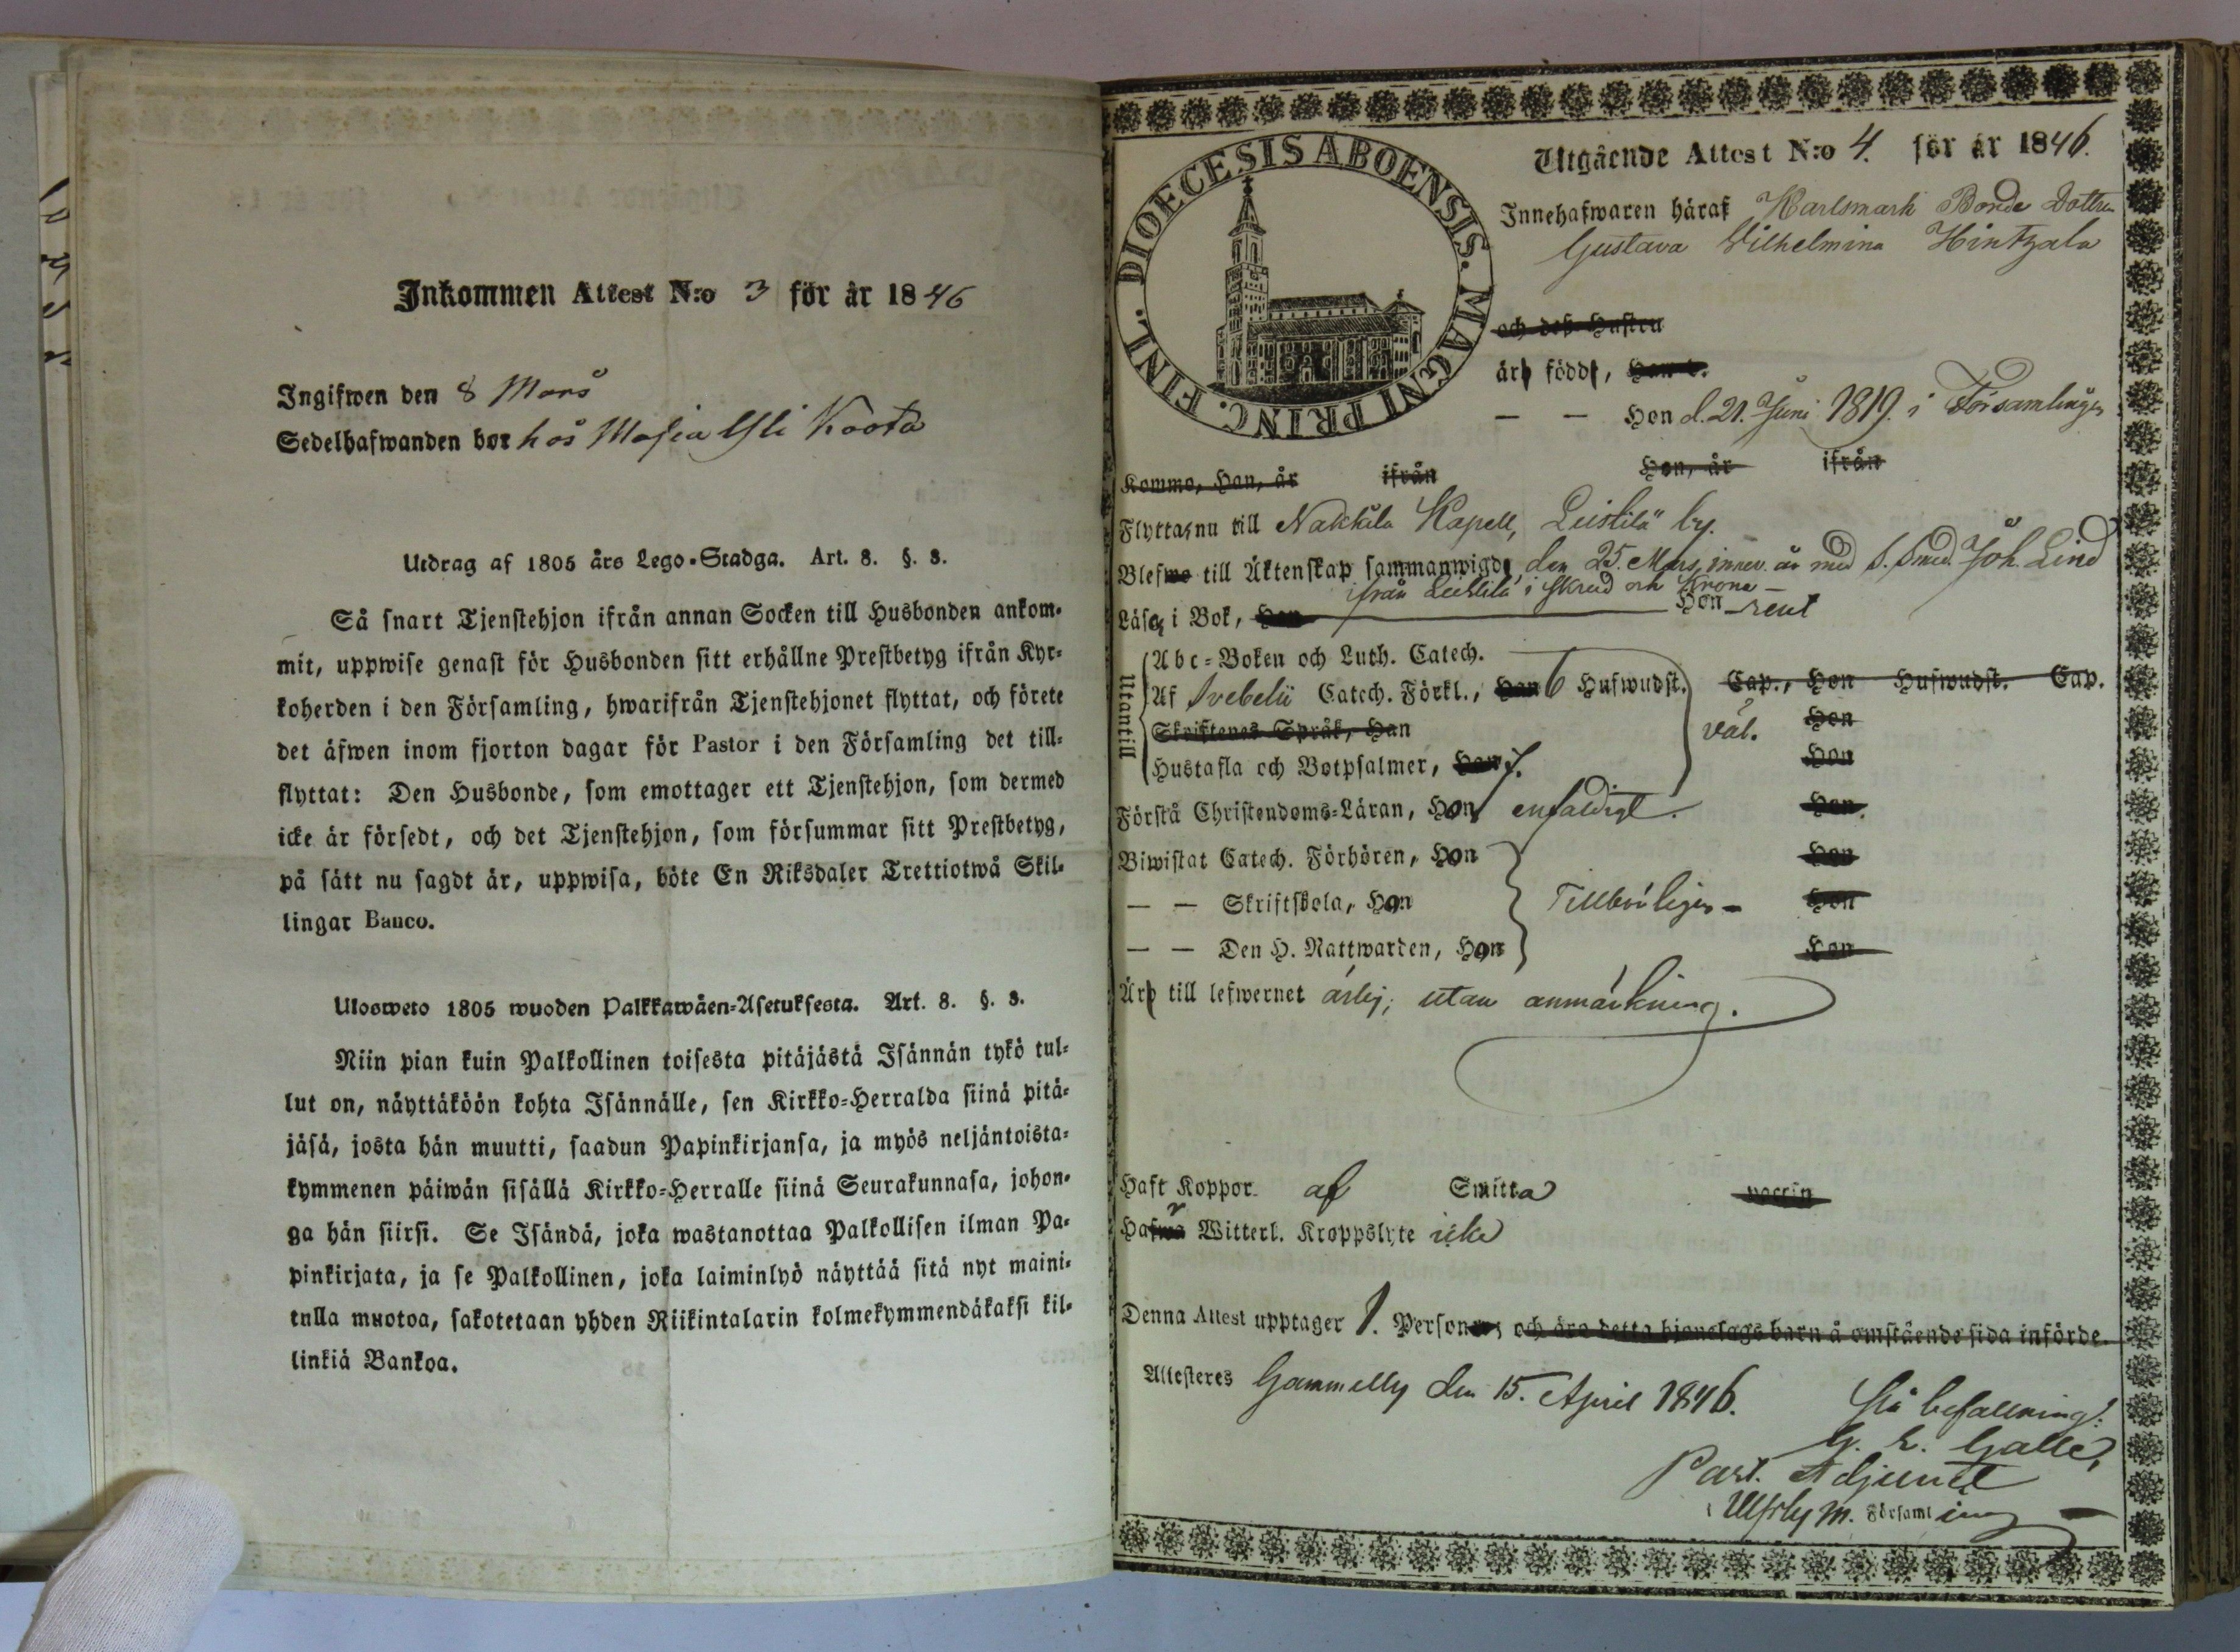 Inkommen Attest N:o 3 för år 1846
Ingifwen den 8 Mars
Sedelhafwanden bor hos Yli Koota
Utdrag af 1805 års Lego-Stadga. Art. 8. §. 3.
Så snart Tjenstehjon ifrån annan Socken till Husbonden ankom-
mit, uppwise genast för Husbonden sitt erhållne Prestbetyg ifrån Kyr-
koherden i den Församling, hwarifrån Tjenstehjonet flyttat, och förete
det äfwen inom fjorton dagar för Pastor i den Församling det till-
flyttat: Den Husbonde, som emottager ett Tjenstehjon, som dermed
icke är försedt, och det Tjenstehjon, som försummar sitt Prestbetyg,
på sätt nu sagdt är, uppwisa, böte En Riksdaler Trettiotwå Skil-
lingar Banco.
Ulosweto 1805 wuoden Palkkawäen-Asetuksesta. Art. 8. §. 3.
Niin pian kuin Palkollinen toisesta pitäjästä Isännän tykö tul-
lut on, näyttäköön kohta Isännälle, sen Kirkko-Herralda siinä pitä-
jäsä, josta hän muutti, saadun Papinkirjansa, ja myös neljäntoista-
kymmenen päiwän sisällä Kirkko-Herralle siinä Seurakunnasa, johon-
ga hän siirsi. Se Isändä, joka wastanottaa Palkollisen ilman Pa-
pinkirjata, ja se Palkollinen, joka laiminlyö näyttää sitä nyt maini-
tulla muotoa, sakotetaan yhden Riikintalarin kolmekymmendäkaksi kil-
linkiä Bankoa.
DIOECESIS ABOENSIS. MAGNI PRINC. FINL.
Utgående Attest N:o 4. för år 1846.
Innehafwaren häraf Karlsmark Bonde Dottren
Gustava Wilhelmina Hintzala
och deß Hustru
är född,
— — Hon d. 21. Juni 1819. i Församlingen
Komma, Han, år ifrån Hon, år ifrån
Flyttar nu till Nakkila Kapell, Leistilä by.
Blefwo till Äktenskap sammanwigde den 25. Mars innev. år med S. Smed. Joh. Lind
ifrån Leistilä i Skrud och Krona —
Läsa i Bok, Han Hon rent
Utantill
Abc-Boken och Luth. Catech.
Af Svebelii Catech. Förkl., Han 6 Hufwudst. Cap., Hon Hufwudst. Cap.
Skriftenes Språk, Han väl. Hon
Hustafla och Botpsalmer, Han 7. Hon
Förstå Christendoms-Läran, Hon enfaldigt. Hon
Biwistat Catech. Förhören, Hon Hon
— — Skriftskola, Hon Tillbörligen — Hon
— — Den H. Nattwarden, Hon Hon
Är till lefwernet ärlig, utan anmärkning.
Haft Koppor af Smitta vaccin
Hafwa Witterl. Kroppslyte icke
Denna Attest upptager 1. Personer, och äro detta hjonelags barn å omstående sida införde.
Attesteres Gammelby den 15. April 1846. På befallning:
G. L. Gallé,
Past. Adjunct
i Ulfsby m. Församling